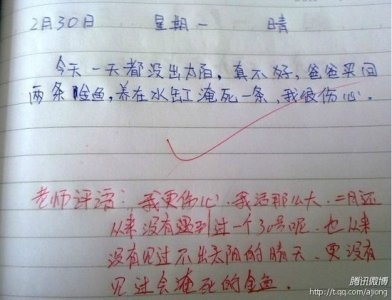 2月30日 星期一 晴
今天一天都没出太阳，真不好，爸爸买回
两条金鱼，养在水缸淹死一条，我很伤心。
老师评语：我更伤心，我活那么大，二月还
从来没有遇到过一个30号呢，也从来
没有见过不出太阳的晴天，更没有
见过会淹死的金鱼
腾讯微博
http://t.qq.com/ajiong